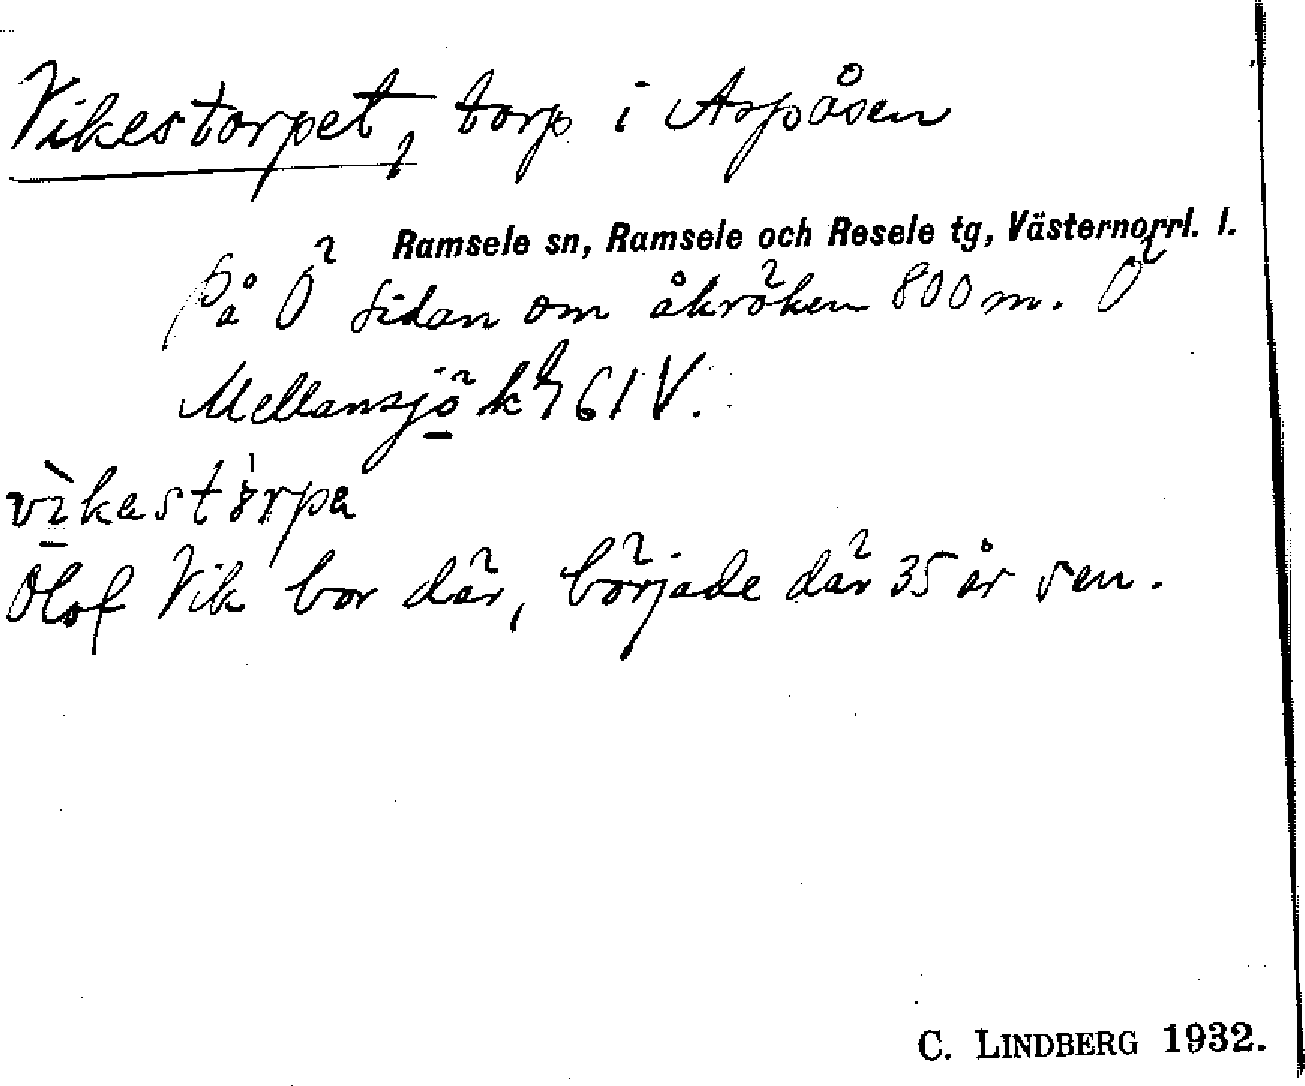 Vikestorpet, torp i Aspåsen
Ramsele sn, Ramsele och Resele tg, Västernorrl. l.
på Ö sidan om åkröken 800 m. Ö
Mellansjö 61 V.
vikastorpa
Olof Vik bor där, började där 35 år sen.
C. LINDBERG 1932.